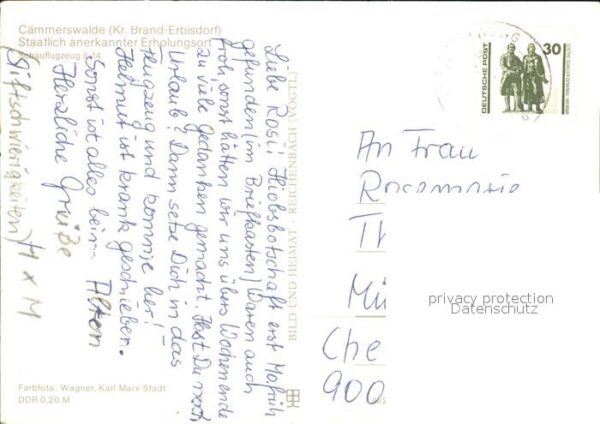 Cämmerswalde (Kr. Brand-Erbisdorf)
Staatlich anerkannter Erholungsort
Schauflugzeug Il-14
Liebe Rosi! Hiobsbotschaft erst Mofrüh
gefunden (im Briefkasten) Waren auch
froh, sonst hätten wir uns übers Wochenende
zu viele Gedanken gemacht. Hast Du noch
Urlaub? Dann setze Dich in das
Flugzeug und komme her!
Helmut ist krank geschrieben.
Sonst ist alles beim Alten
Herzliche Grüße
(Stiftschwierigkeiten) H x M
Farbfoto: Wagner, Karl-Marx-Stadt
DDR 0,20 M
BILD UND HEIMAT REICHENBACH (VOGTL)
BR
DEUTSCHE POST
30
An Frau
Rosemarie
Th
Mü
Che
900
privacy protection
Datenschutz